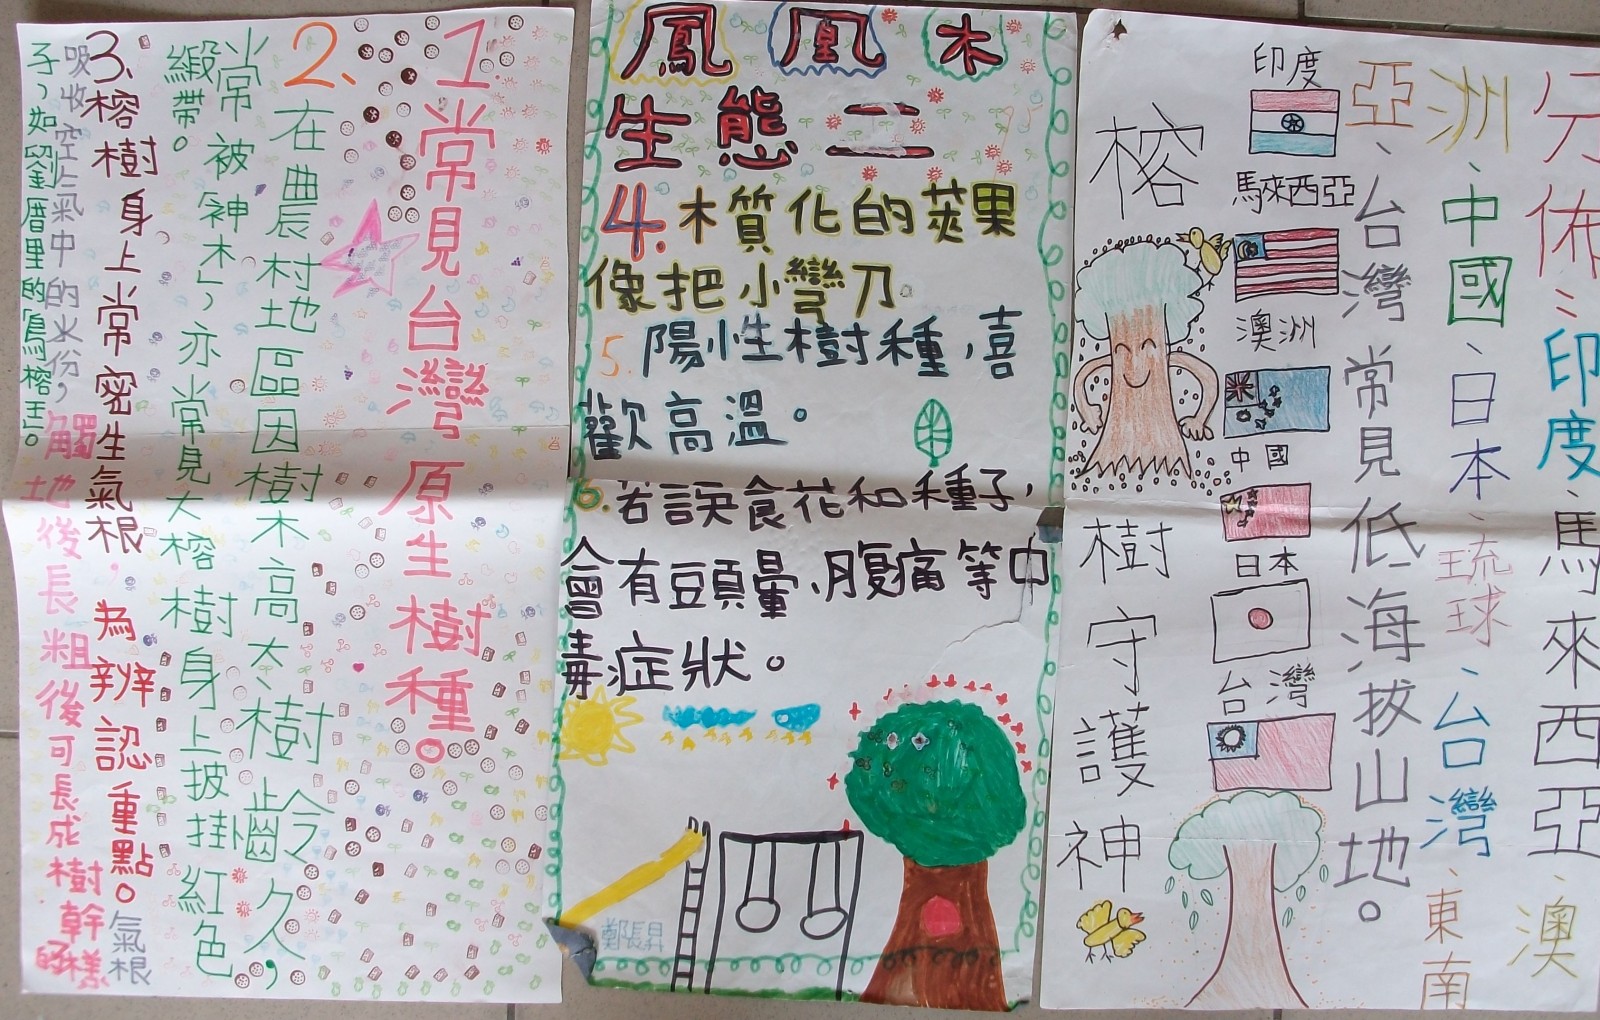 1.常見台灣原生樹種。
2.在農村地區因樹木高大、樹齡久,
常被「神木」,亦常見大榕樹身上披掛紅色
緞帶。
3.榕樹身上常密生氣根,為辨認重點。氣根
吸收空氣中的水份,觸地後長粗後可長成樹幹的樣
子,如劉厝里的「鳥榕王」。
鳳凰木
生態二
4.木質化的莢果
像把小彎刀。
5.陽性樹種,喜
歡高溫。
6.若誤食花和種子,
會有頭暈、腹痛等中
毒症狀。
鄭長昇
分佈:印度、馬來西亞、澳
洲、中國、日本、琉球、台灣、東南
亞、台灣常見低海拔山地。
印度
馬來西亞
澳洲
中國
日本
台灣
榕樹守護神